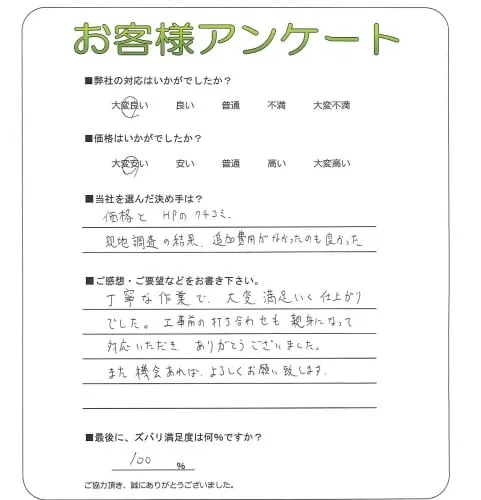 お客様アンケート
■弊社の対応はいかがでしたか?
大変良い 良い 普通 不満 大変不満
■価格はいかがでしたか?
大変安い 安い 普通 高い 大変高い
■当社を選んだ決め手は?
価格と HPのクチコミ.
現地調査の結果、追加費用がなかったのも良かった
■ご感想・ご要望などをお書き下さい。
丁寧な作業で、大変満足いく仕上がり
でした。工事前の打ち合わせも親身になって
対応いただき ありがとうございました。
また機会あれば、よろしくお願い致します.
■最後に、ズバリ満足度は何%ですか?
100 %
ご協力頂き、誠にありがとうございました。